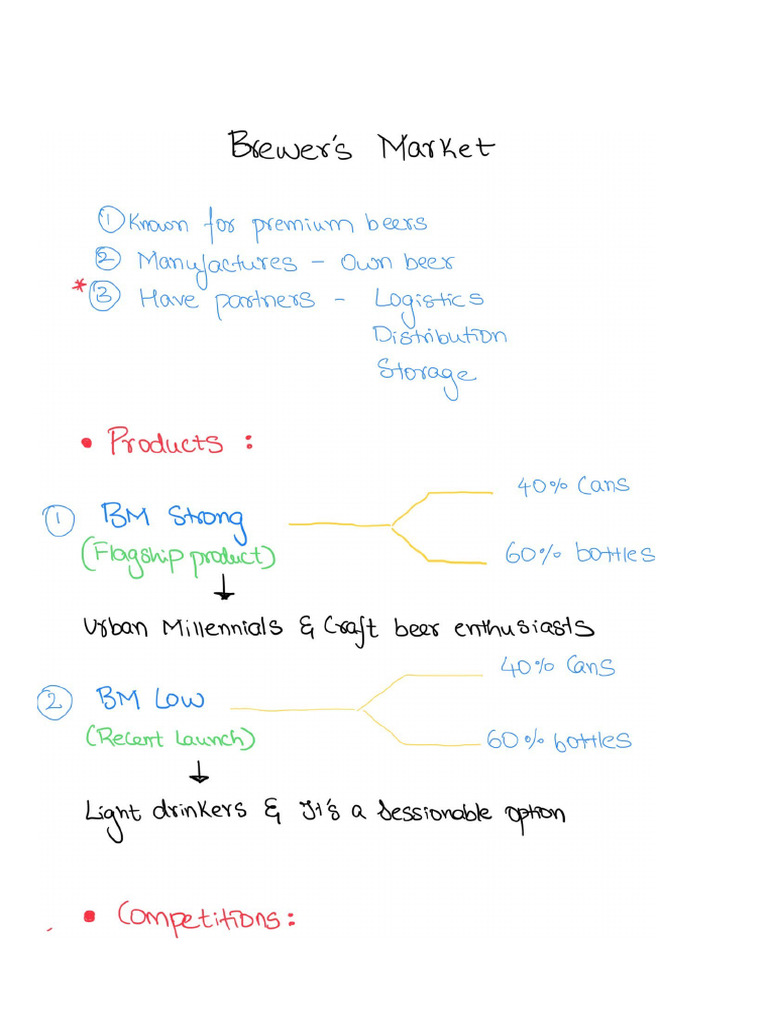 Brewer's Market
① Known for premium beers
② Manufactures - Own beer
*③ Have partners - Logistics
Distribution
Storage
• Products :
40% Cans
① BM Strong
60% bottles
(Flagship product)
↓
Urban Millennials & Craft beer enthusiasts
40% Cans
② BM Low
60% bottles
(Recent Launch)
↓
Light drinkers & It's a Sessionable option
• Competitions: